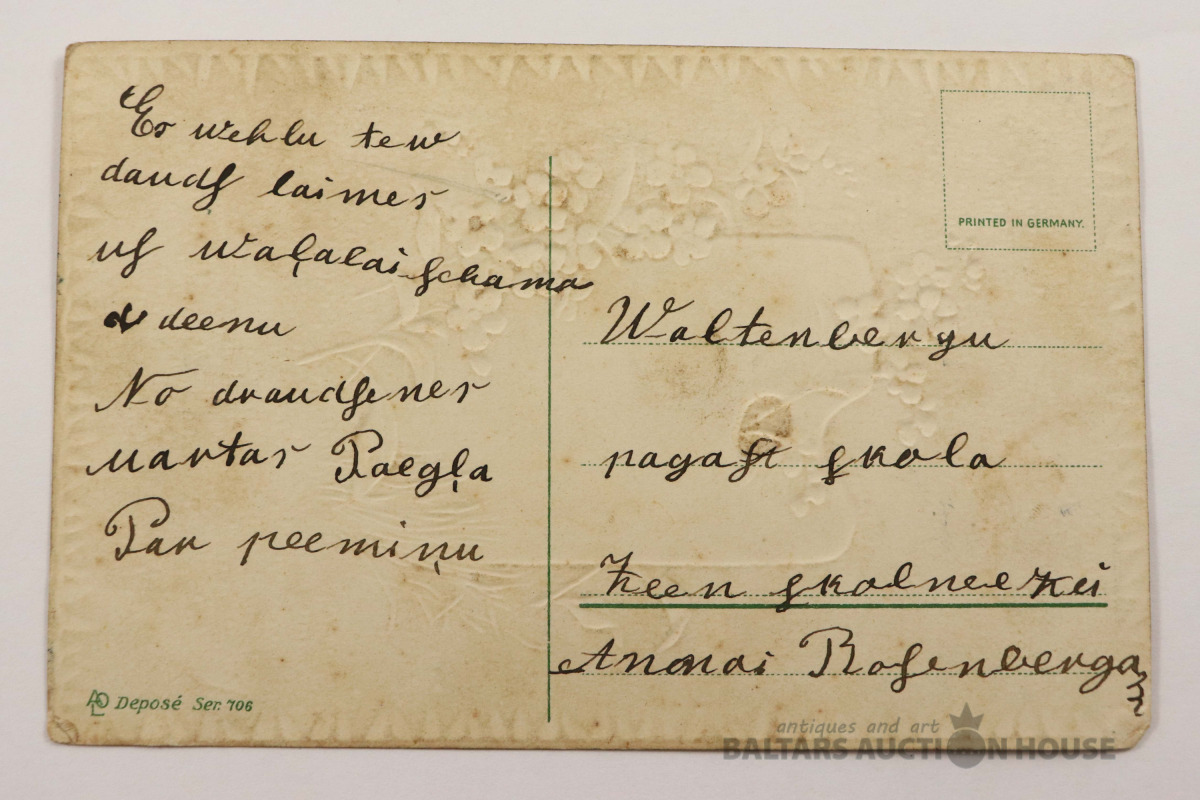 Es wehlu tew
daudſ laimes
uſ waļalaiſchama
deenu
No draudſenes
Martas Paegļa
Par peemiņu
PRINTED IN GERMANY.
Waltenbergu
pagaſt ſkola
Zeen ſkolneezei
Annai Roſenberga
Deposé Ser. 706
antiques and art
BALTARS AUCTION HOUSE